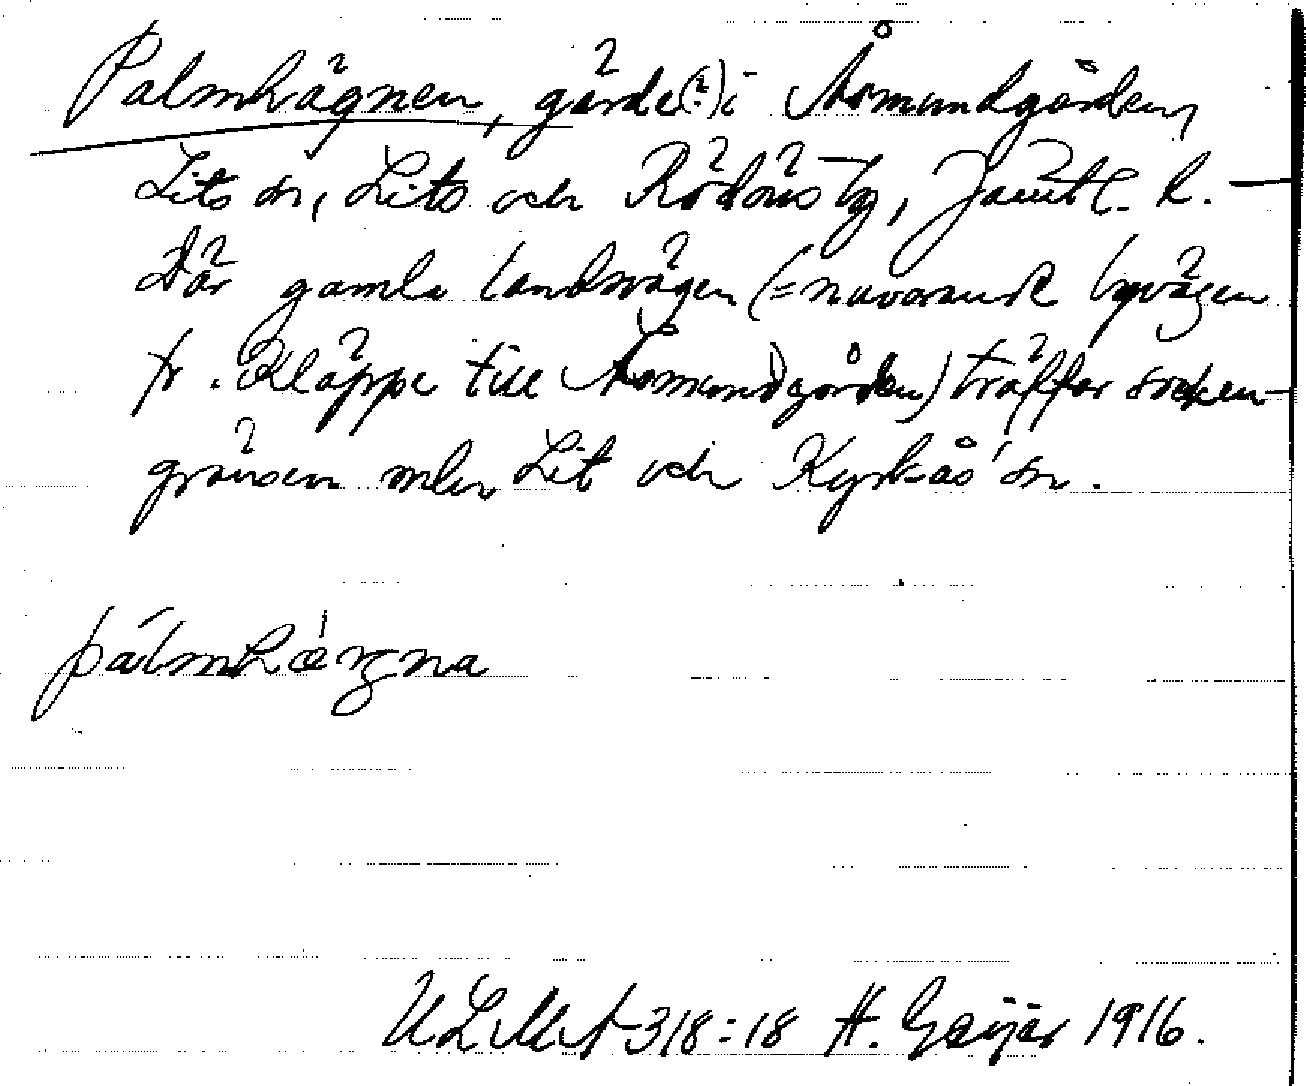 Palmhägnen, gärde(?) i Åsmundgården,
Lits sn, Lits och Rödöns tg, Jämtl. l. —
Där gamla landsvägen (= nuvarande byvägen
fr. Kläppe till Åsmundgården) träffar socken-
gränsen mlen Lit och Kyrkås sn.
pálmhæŋna
ULMA 318:18 H. Geijer 1916.